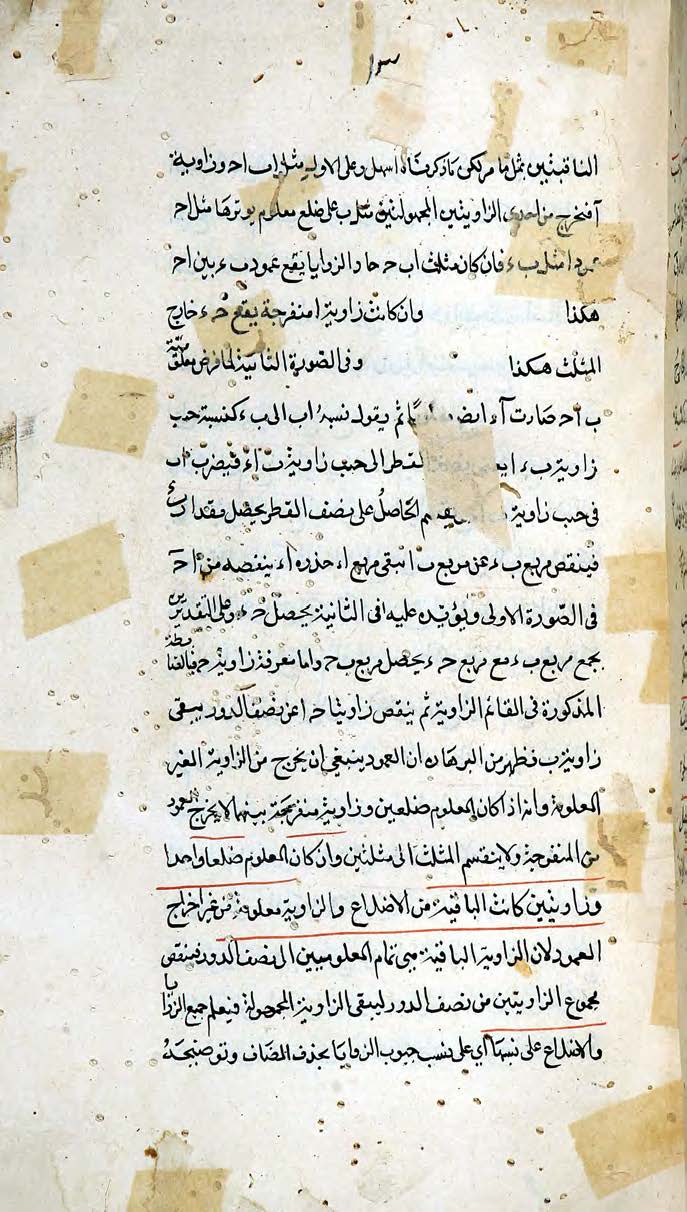 ١٣
الباقيتين بمثل ما مر لكن ما ذكرناه اسهل وعلى الاول مثلث اب اح وزاوية
آ فنخرج من احدى الزاويتين المجهولتين مثل ب على ضلع معلوم يوترها مثل اح
عمودا مثل ب ء فان كان مثلث اب ح حاد الزوايا يقع عمود ب ء بين اح
هكذا وان كانت زاوية ا منفرجة يقع ح ء خارج
المثلث هكذا وفى الصورة الثانية لما فرض معلومية
ب ا ح صارت آ ء ايضا ثم يقول نسبة اب الى ب ء كنسبة جيب
زاوية ب ء ا القطر الى جيب زاوية ب اء فيضرب اب
فى جيب زاوية الحاصل على نصف القطر يحصل مقدار ب ء
فينقص مربع ب ء عن مربع ب ا تبقى مربع اء جذره اء ينقصه من ا ح
فى الصورة الاولى ويزيده عليه فى الثانية يحصل ح ء وعلى التقديرين
يجمع مربع ب ء مع مربع ح ء يحصل مربع ب ح واما معرفة زاوية ح فبالضابطة
المذكورة فى القائم الزاوية ثم ينقص زاويتا ح ا عن نصف الدور يبقى
زاوية ب فظهر من البرهان ان العمود ينبغى ان يخرج من الزاوية الغير
المعلومة وانه اذا كان المعلوم ضلعين وزاوية منفرجة بينهما لا يخرج العمود
من المنفرجة ولا ينقسم المثلث الى مثلثين وان كان المعلوم ضلعا واحدا
وزاويتين كانت الباقية من الاضلاع والزاوية معلومة من غير اخراج
العمود لان الزاوية الباقية هى تمام المعلومين الى نصف الدور فينقص
مجموع الزاويتين من نصف الدور ليبقى الزاوية المجهولة فيعلم جميع الزوايا
والاضلاع على نسبها اى على نسب جيوب الزوايا بحذف المضاف وتوضيحه